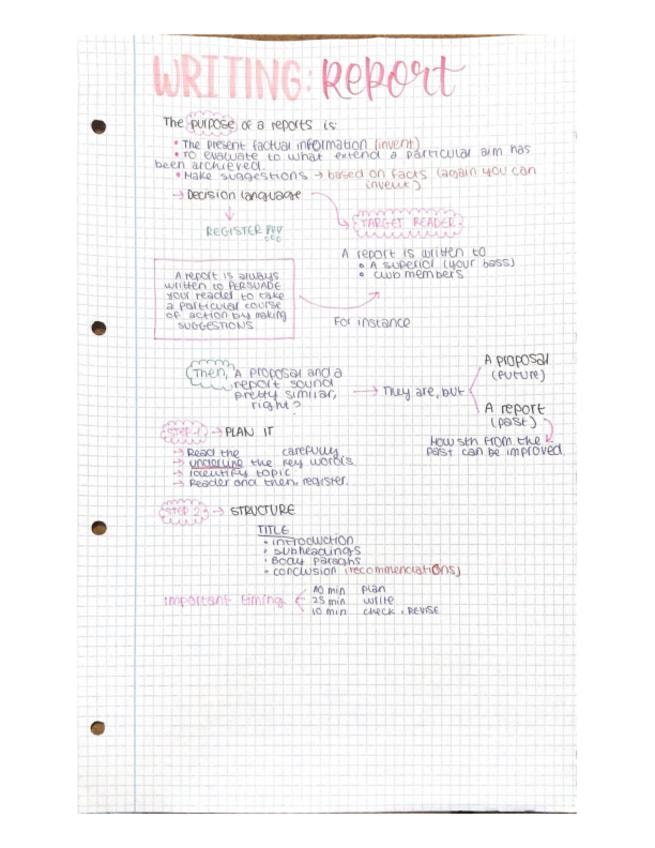 WRITING: Report
The purpose of a reports is:
• The present factual information (invent)
• To evaluate to what extend a particular aim has
been archieved.
• Make suggestions → based on facts (again you can
invent)
→ Decision language
REGISTER
TARGET READER
A report is written to
• A superior (your boss)
• club members
A report is always
written to PERSUADE
your reader to take
a particular course
of action by making
SUGGESTIONS
For instance
Then, A proposal and a
report sound
pretty similar,
right?
→ They are, but
A proposal
(future)
A report
(past)
How sth from the
past can be improved
STEP 1 → PLAN IT
→ Read the carefully
→ underline the key words
→ identify topic
→ Reader and then, register.
STEP 2 → STRUCTURE
TITLE
• introduction
• subheadings
• Body paraghs
• conclusion (recommenciations)
important timing
10 min plan
25 min write
10 min check • REVISE